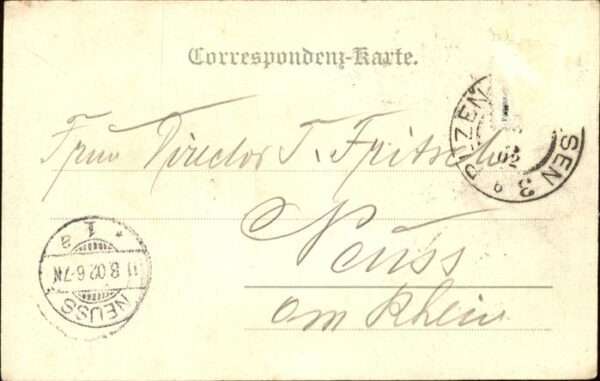 Correspondenz-Karte.
Frau Director T. Fritsch
Neuss
am Rhein
BOZEN
SEN 3
02
NEUSS
11.8.02.6-7N.
* 1 a